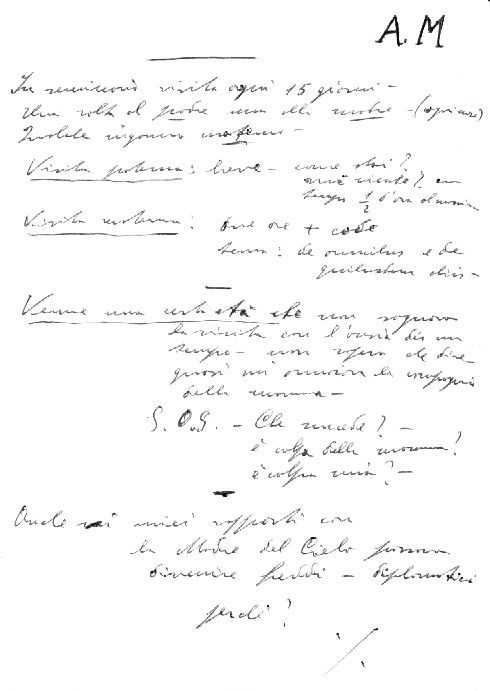 A.M
In seminario visita ogni 15 giorni -
Una volta il padre una alla madre - (ogni mese)
visita paterna: breve - come stai?
tempo 1/2 d'ora al massimo
visita materna: due ore + code
tema: de omnibus et de
quibusdam aliis -
Venne una certa età che non sognavo
la visita con l'ansia di un
tempo - non sapevo che dire
quasi mi la compagnia
della mamma -
S.O.S. - Che succede? -
è colpa della mamma?
è colpa mia? -
Anche i miei rapporti con
la Madre del Cielo possono
divenire freddi - diplomatici
perché?
./.